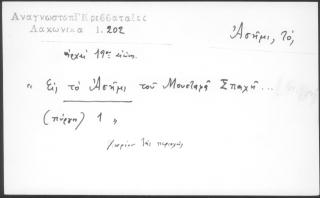 ΑναγνωστοπΓΚρεββαταΐες
Λακωνικα 1.202
Ἀσῆμι, τό,
ἀρχαὶ 19ου αἰών.
" Εἰς τὸ Ἀσῆμι τοῦ Μουσταφᾶ Σπαχῆ...
(πύργοι) 1 "
τῆς περιοχῆς